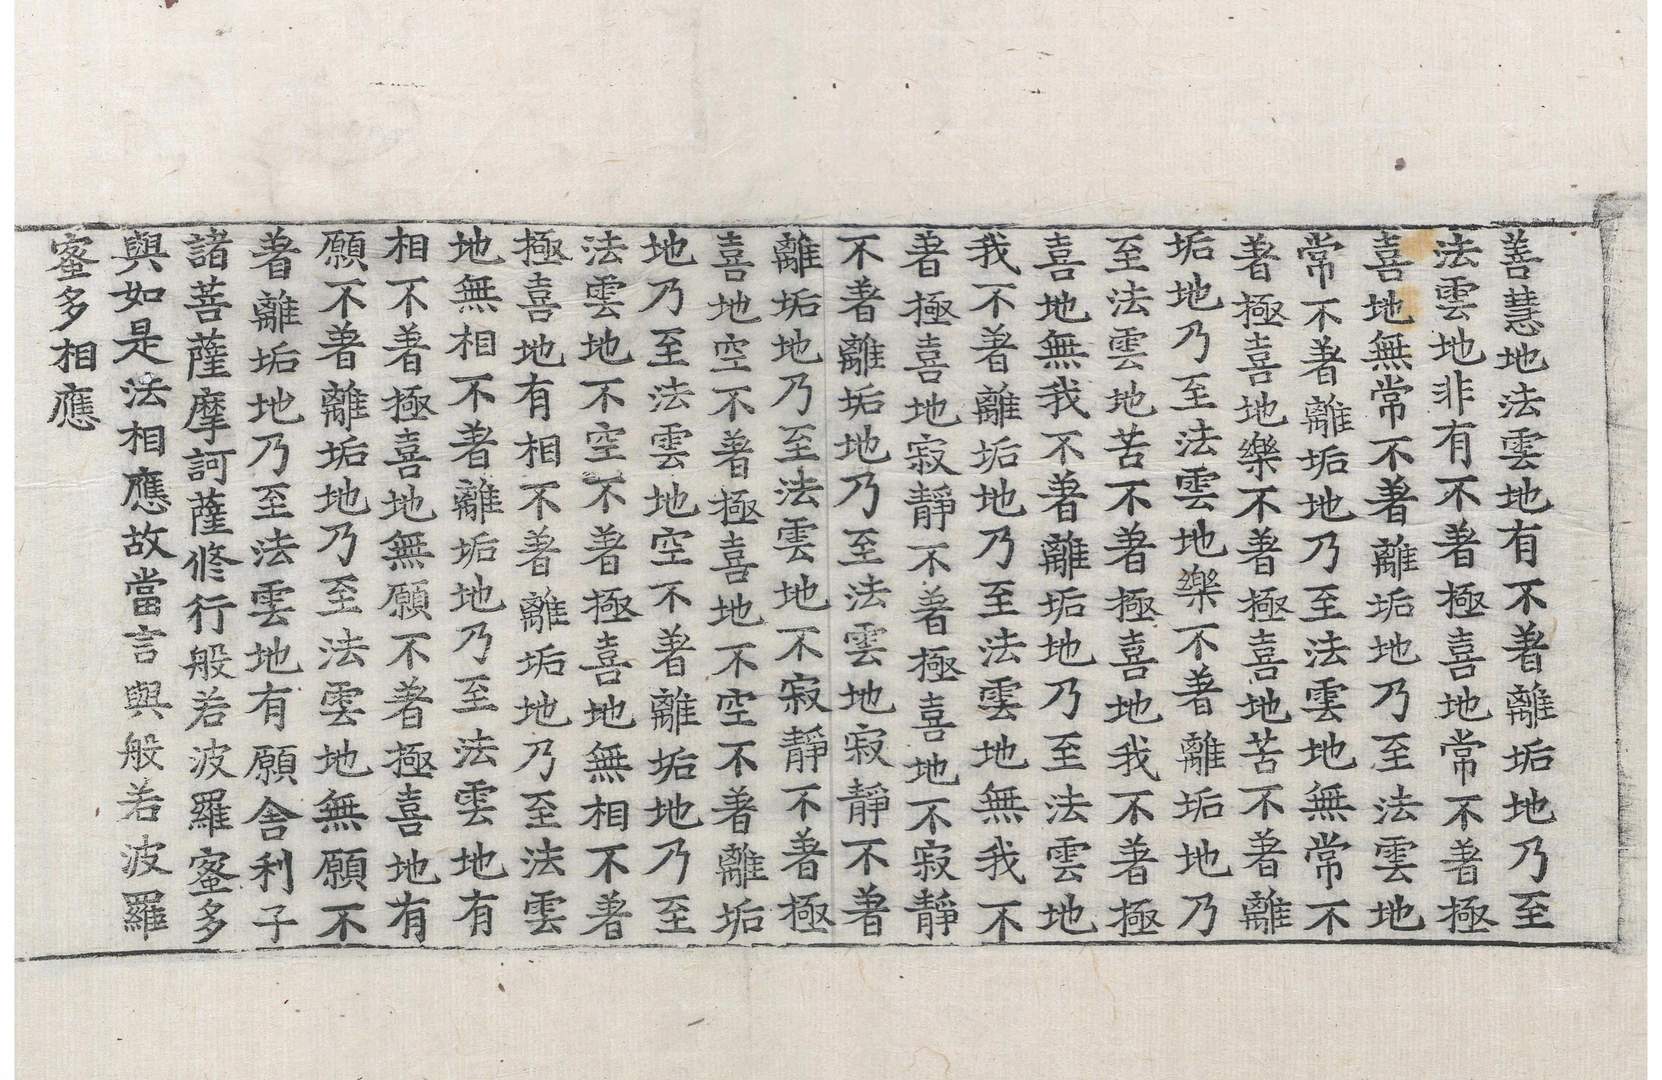 善慧地法雲地有不著離垢地乃至
法雲地非有不著極喜地常不著極
喜地無常不著離垢地乃至法雲地
常不著離垢地乃至法雲地無常不
著極喜地樂不著極喜地苦不著離
垢地乃至法雲地樂不著離垢地乃
至法雲地苦不著極喜地我不著極
喜地無我不著離垢地乃至法雲地
我不著離垢地乃至法雲地無我不
著極喜地寂靜不著極喜地不寂靜
不著離垢地乃至法雲地寂靜不著
離垢地乃至法雲地不寂靜不著極
喜地空不著極喜地不空不著離垢
地乃至法雲地空不著離垢地乃至
法雲地不空不著極喜地無相不著
極喜地有相不著離垢地乃至法雲
地無相不著離垢地乃至法雲地有
相不著極喜地無願不著極喜地有
願不著離垢地乃至法雲地無願不
著離垢地乃至法雲地有願舍利子
諸菩薩摩訶薩修行般若波羅蜜多
與如是法相應故當言與般若波羅
蜜多相應